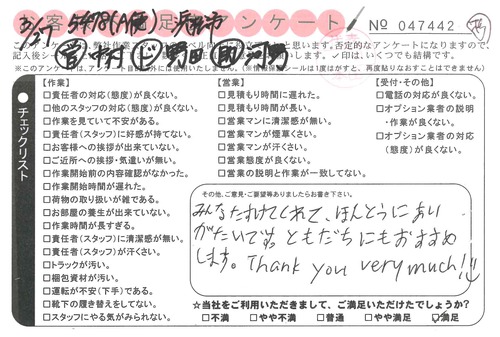 お客様満足度アンケート
№ 047442
3/27 5478(A便) 浜松市
営 中村 ド 野田 取 河野
このアンケートは
と思います。否定的なアンケートになりますので、
記入後シー
します。✓印は、いくつでも結構です。
※このアンケートは、アンケート目的以外には使用いたしません。(※情報保護シールは1度はがすと、再度貼りなおすことはできません)
●チェックリスト
【作業】
□責任者の対応(態度)が良くない。
□他のスタッフの対応(態度)が良くない。
□作業を見ていて不安がある。
□責任者(スタッフ)に好感が持てない。
□お客様への挨拶が出来ていない。
□ご近所への挨拶・気遣いが無い。
□作業開始前の内容確認がなかった。
□作業開始時間が遅れた。
□荷物の取り扱いが雑である。
□お部屋の養生が出来ていない。
□作業時間が長すぎる。
□責任者(スタッフ)に清潔感が無い。
□責任者(スタッフ)が汗くさい。
□トラックが汚い。
□梱包資材が汚い。
□運転が不安(下手)である。
□靴下の履き替えをしてない。
□スタッフにやる気がみられない。
【営業】
□見積もり時間に遅れた。
□見積もり時間が長い。
□営業マンに清潔感が無い。
□営業マンが煙草くさい。
□営業マンが汗くさい。
□営業態度が良くない。
□営業の説明と作業が一致してない。
【受付・その他】
□電話の対応が良くない。
□オプション業者の説明
・作業が良くない。
□オプション業者の対応
(態度)が良くない。
その他、ご意見・ご要望等ありましたらお書き下さい。
みんなたすけてくれて、ほんとうにあい
がたいです。ともだちにもおすすめ
します。Thank you very much!!
☆当社をご利用いただきまして、ご満足いただけたでしょうか?
□不満 □やや不満 □普通 □やや満足 ☑満足